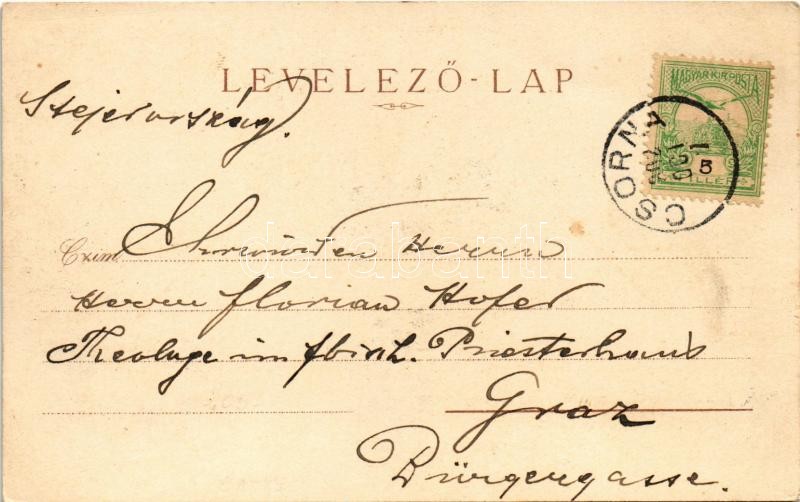 LEVELEZŐ-LAP
Stejerország.
MAGYAR KIR. POSTA
5
CSORNA
Czim
Ehrwürden Herrn
Herrn Florian Hofer
Theologe im fbischl. Priesterhaus
Graz
Bürgergasse.
darabanth